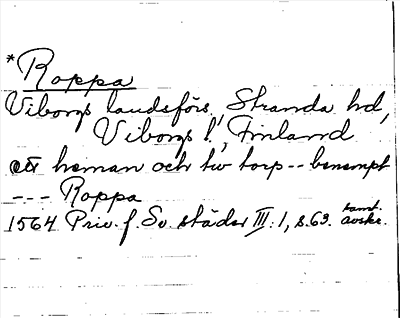 *Roppa
Viborgs landsförs., Stranda hd,
Viborgs l., Finland
ett heman och tw torp -- benempt
--- Roppa
1564 Priv. f. Sv. städer III: 1, s. 63. samt. avskr.